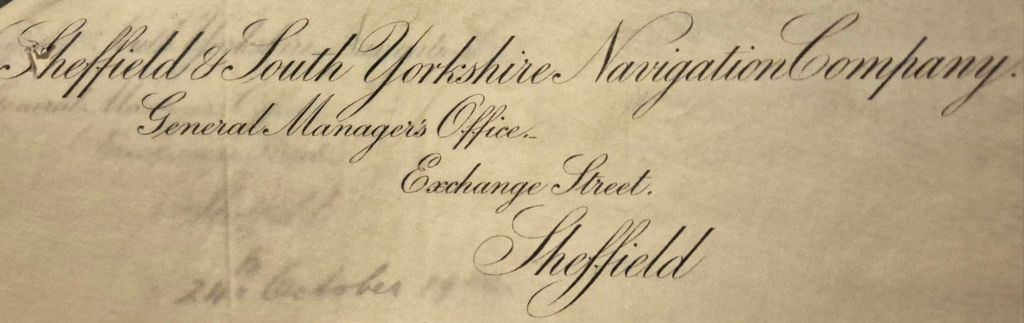 Sheffield & South Yorkshire Navigation Company.
General Manager's Office.
Exchange Street.
Sheffield
24th October